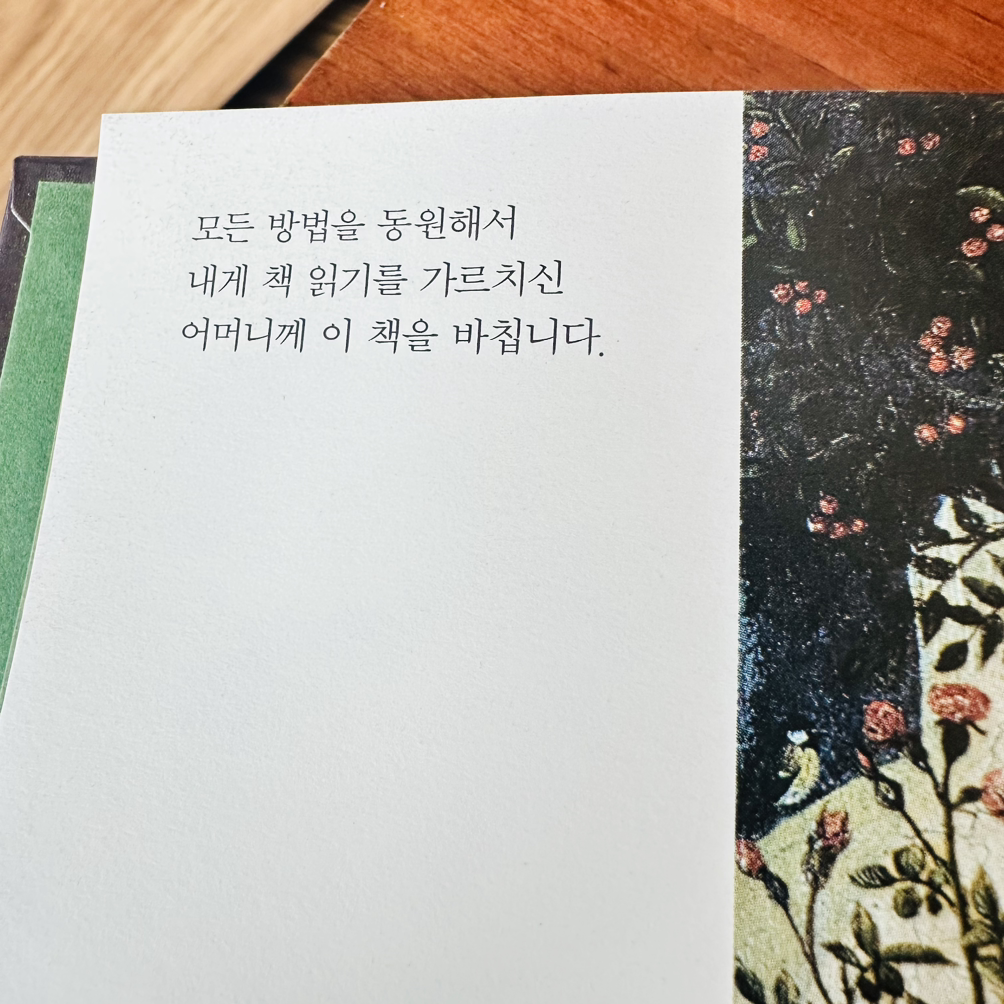 모든 방법을 동원해서
내게 책 읽기를 가르치신
어머니께 이 책을 바칩니다.